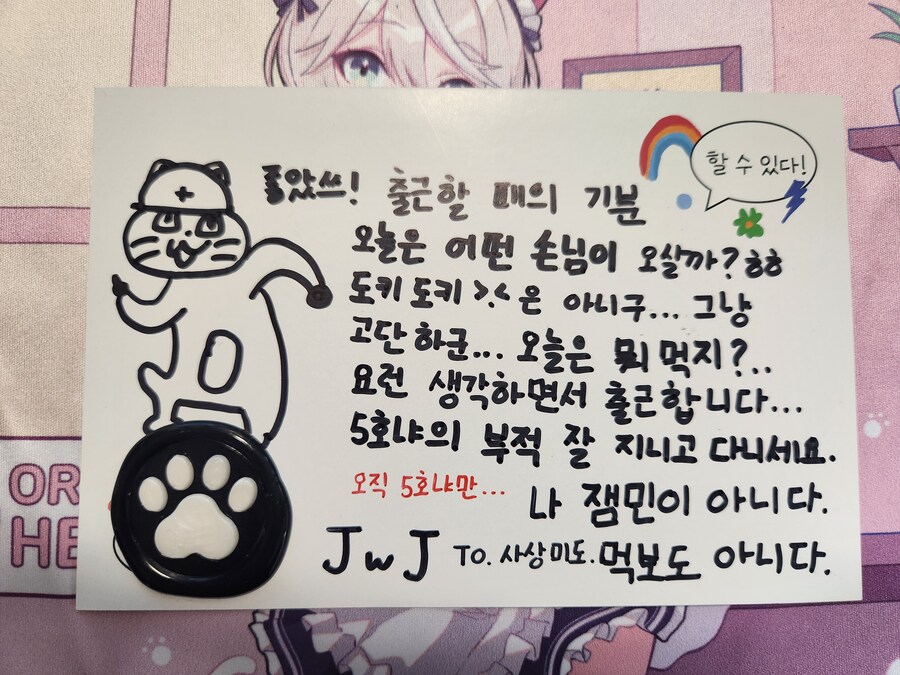 할 수 있다!
좋았쓰! 출근할 때의 기분
오늘은 어떤 손님이 오실까? ㅎㅎ
도키도키 >.< 은 아니구... 그냥
고단하군... 오늘은 뭐 먹지?..
요런 생각하면서 출근합니다...
5호냐의 부적 잘 지니고 다니세요.
오직 5호냐만... 나 잼민이 아니다.
JwJ TO. 사상미도. 먹보도 아니다.
OR
HE